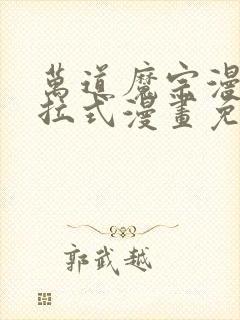 萬道魔宗漫
拉式漫畫免
郭武越